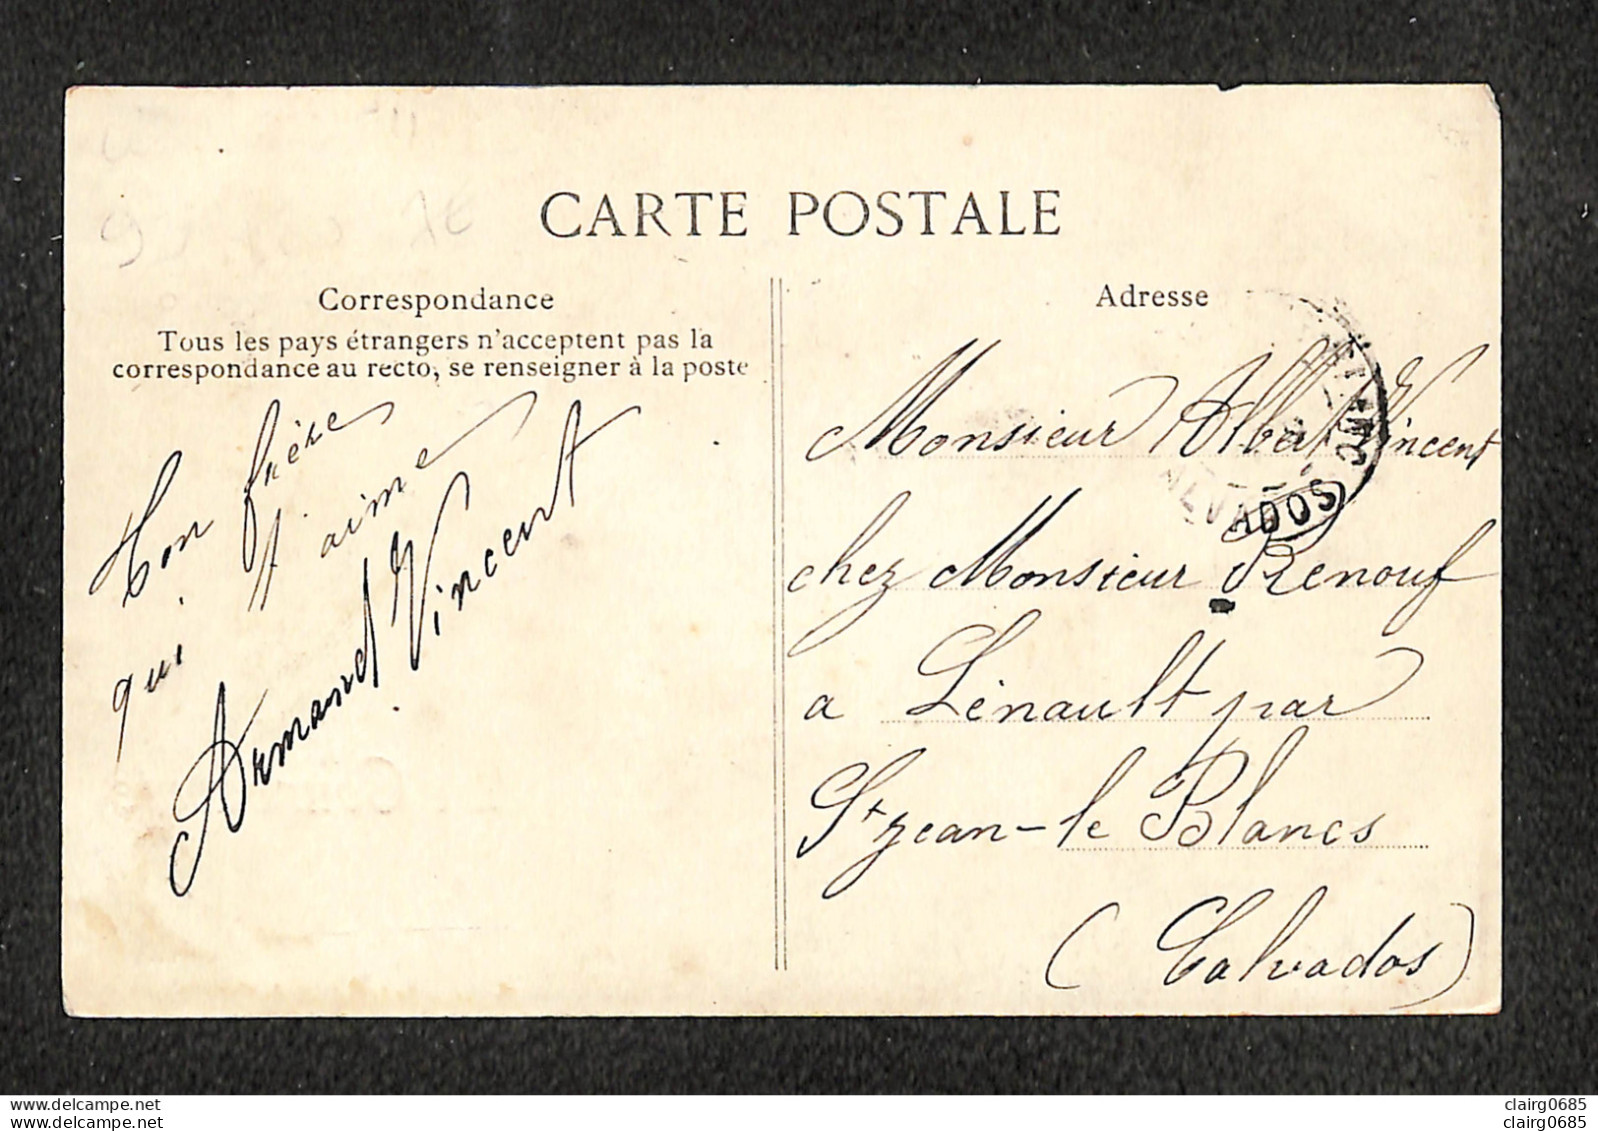 CARTE POSTALE
Correspondance
Tous les pays étrangers n'acceptent pas la
correspondance au recto, se renseigner à la poste
Ton frère
qui t'aime
Armand Vincent
Adresse
Monsieur Albert Vincent
chez Monsieur Renouf
a Lénault par
St jean-le Blancs
(Calvados)
ADOS
www.delcampe.net
website
clairg0685
clairg0685